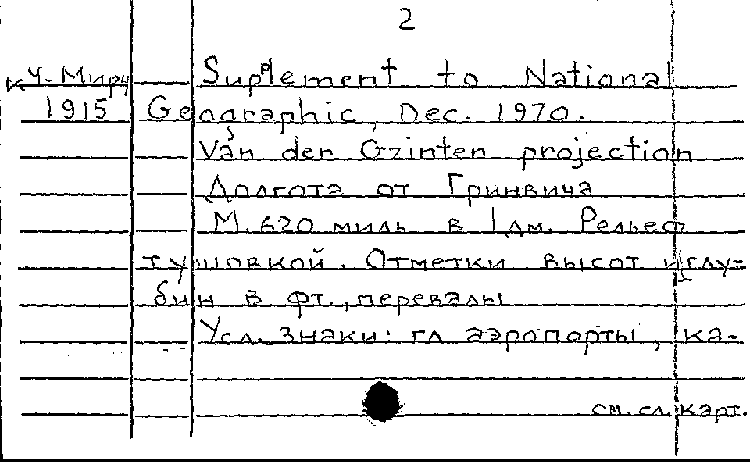 2
К Ч-Миру Suplement to National
1915 Geographic, Dec. 1970.
Van der Grinten projection
Долгота от Гринвича
М. 620 миль в 1 дм. Рельеф
тушовкой. Отметки высот и глу-
бин в фт., перевалы
Усл. знаки: гл аэропорты, ка-
см. сл. карт.